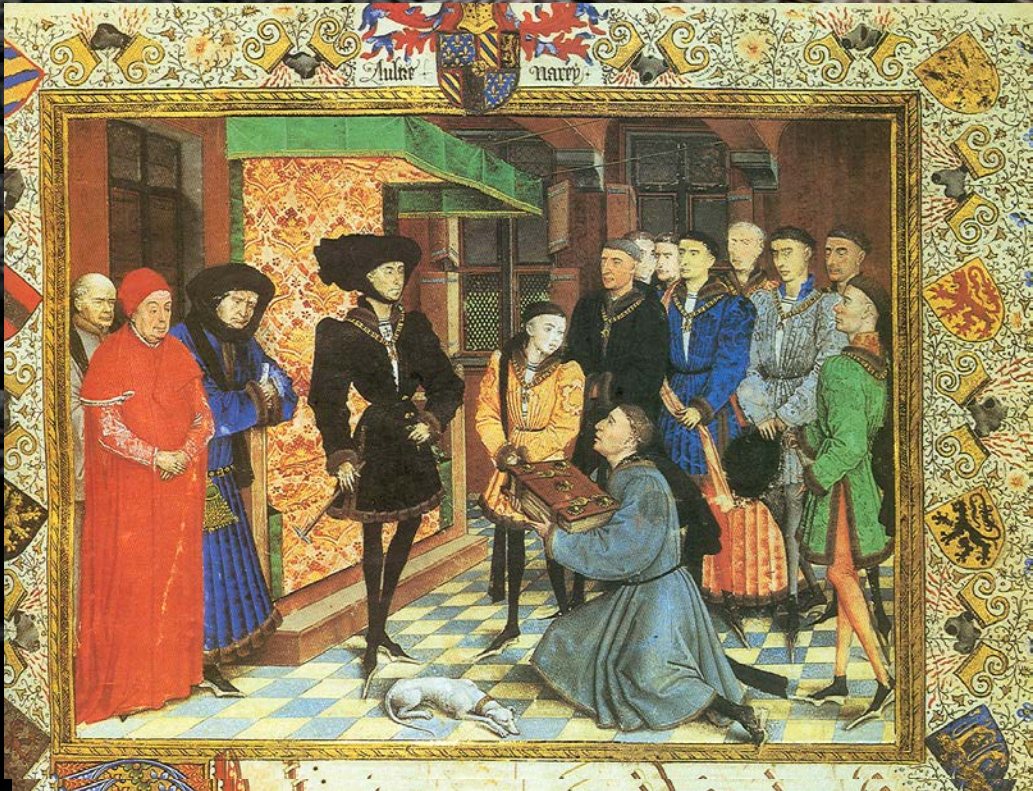 Aultre narey